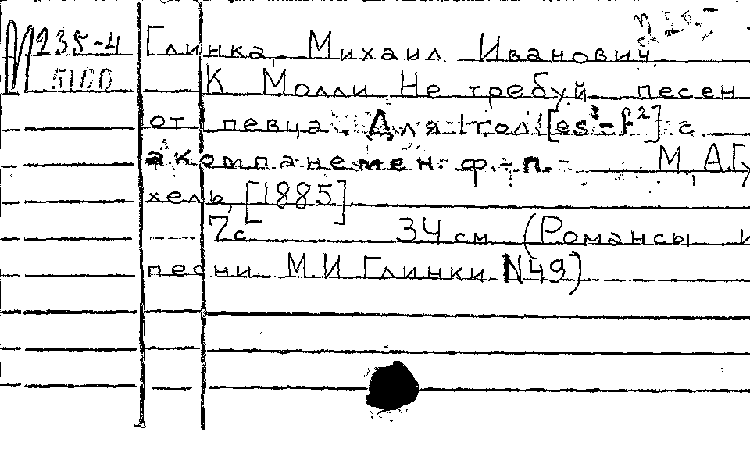 П235-4 Глинка, Михаил Иванович
5100 К Молли Не требуй песен
от певца. Для 1 гол. [es¹-f²] с
акомпанемен. ф.-п. М, А. Гу
хель, [1885]
7с 34 см (Романсы и
песни М.И Глинки N49)